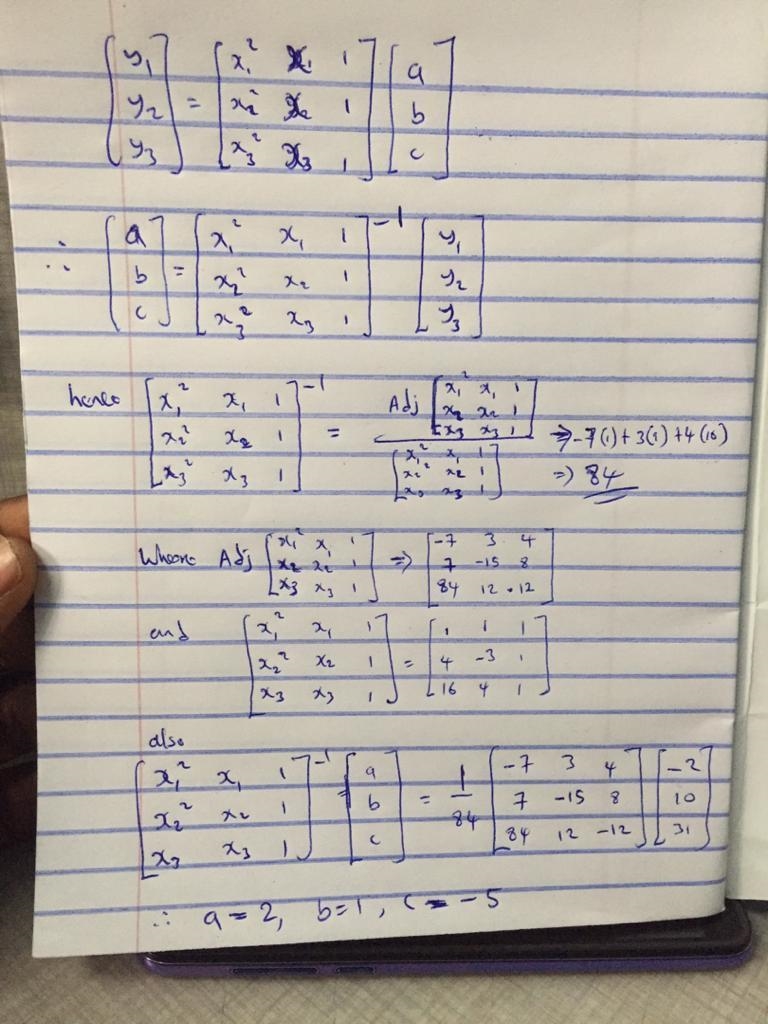 [y₁ y₂ y₃] = [x₁² x₁ 1; x₂² x₂ 1; x₃² x₃ 1] [a b c]
∴ [a b c] = [x₁² x₁ 1; x₂² x₂ 1; x₃² x₃ 1]⁻¹ [y₁ y₂ y₃]
hence [x₁² x₁ 1; x₂² x₂ 1; x₃² x₃ 1]⁻¹ = Adj [x₁² x₁ 1; x₂ x₂ 1; x₃ x₃ 1] / [x₁² x₁ 1; x₂² x₂ 1; x₃ x₃ 1] ⇒ -7(1)+3(1)+4(16)
⇒ 84
Where Adj [x₁² x₁ 1; x₂ x₂ 1; x₃ x₃ 1] ⇒ [-7 3 4; 7 -15 8; 84 12 -12]
and [x₁² x₁ 1; x₂² x₂ 1; x₃ x₃ 1] = [1 1 1; 4 -3 1; 16 4 1]
also
[x₁² x₁ 1; x₂² x₂ 1; x₃ x₃ 1]⁻¹ = [a b c] = 1/84 [-7 3 4; 7 -15 8; 84 12 -12] [-2 10 31]
∴ a = 2, b = 1, c = -5